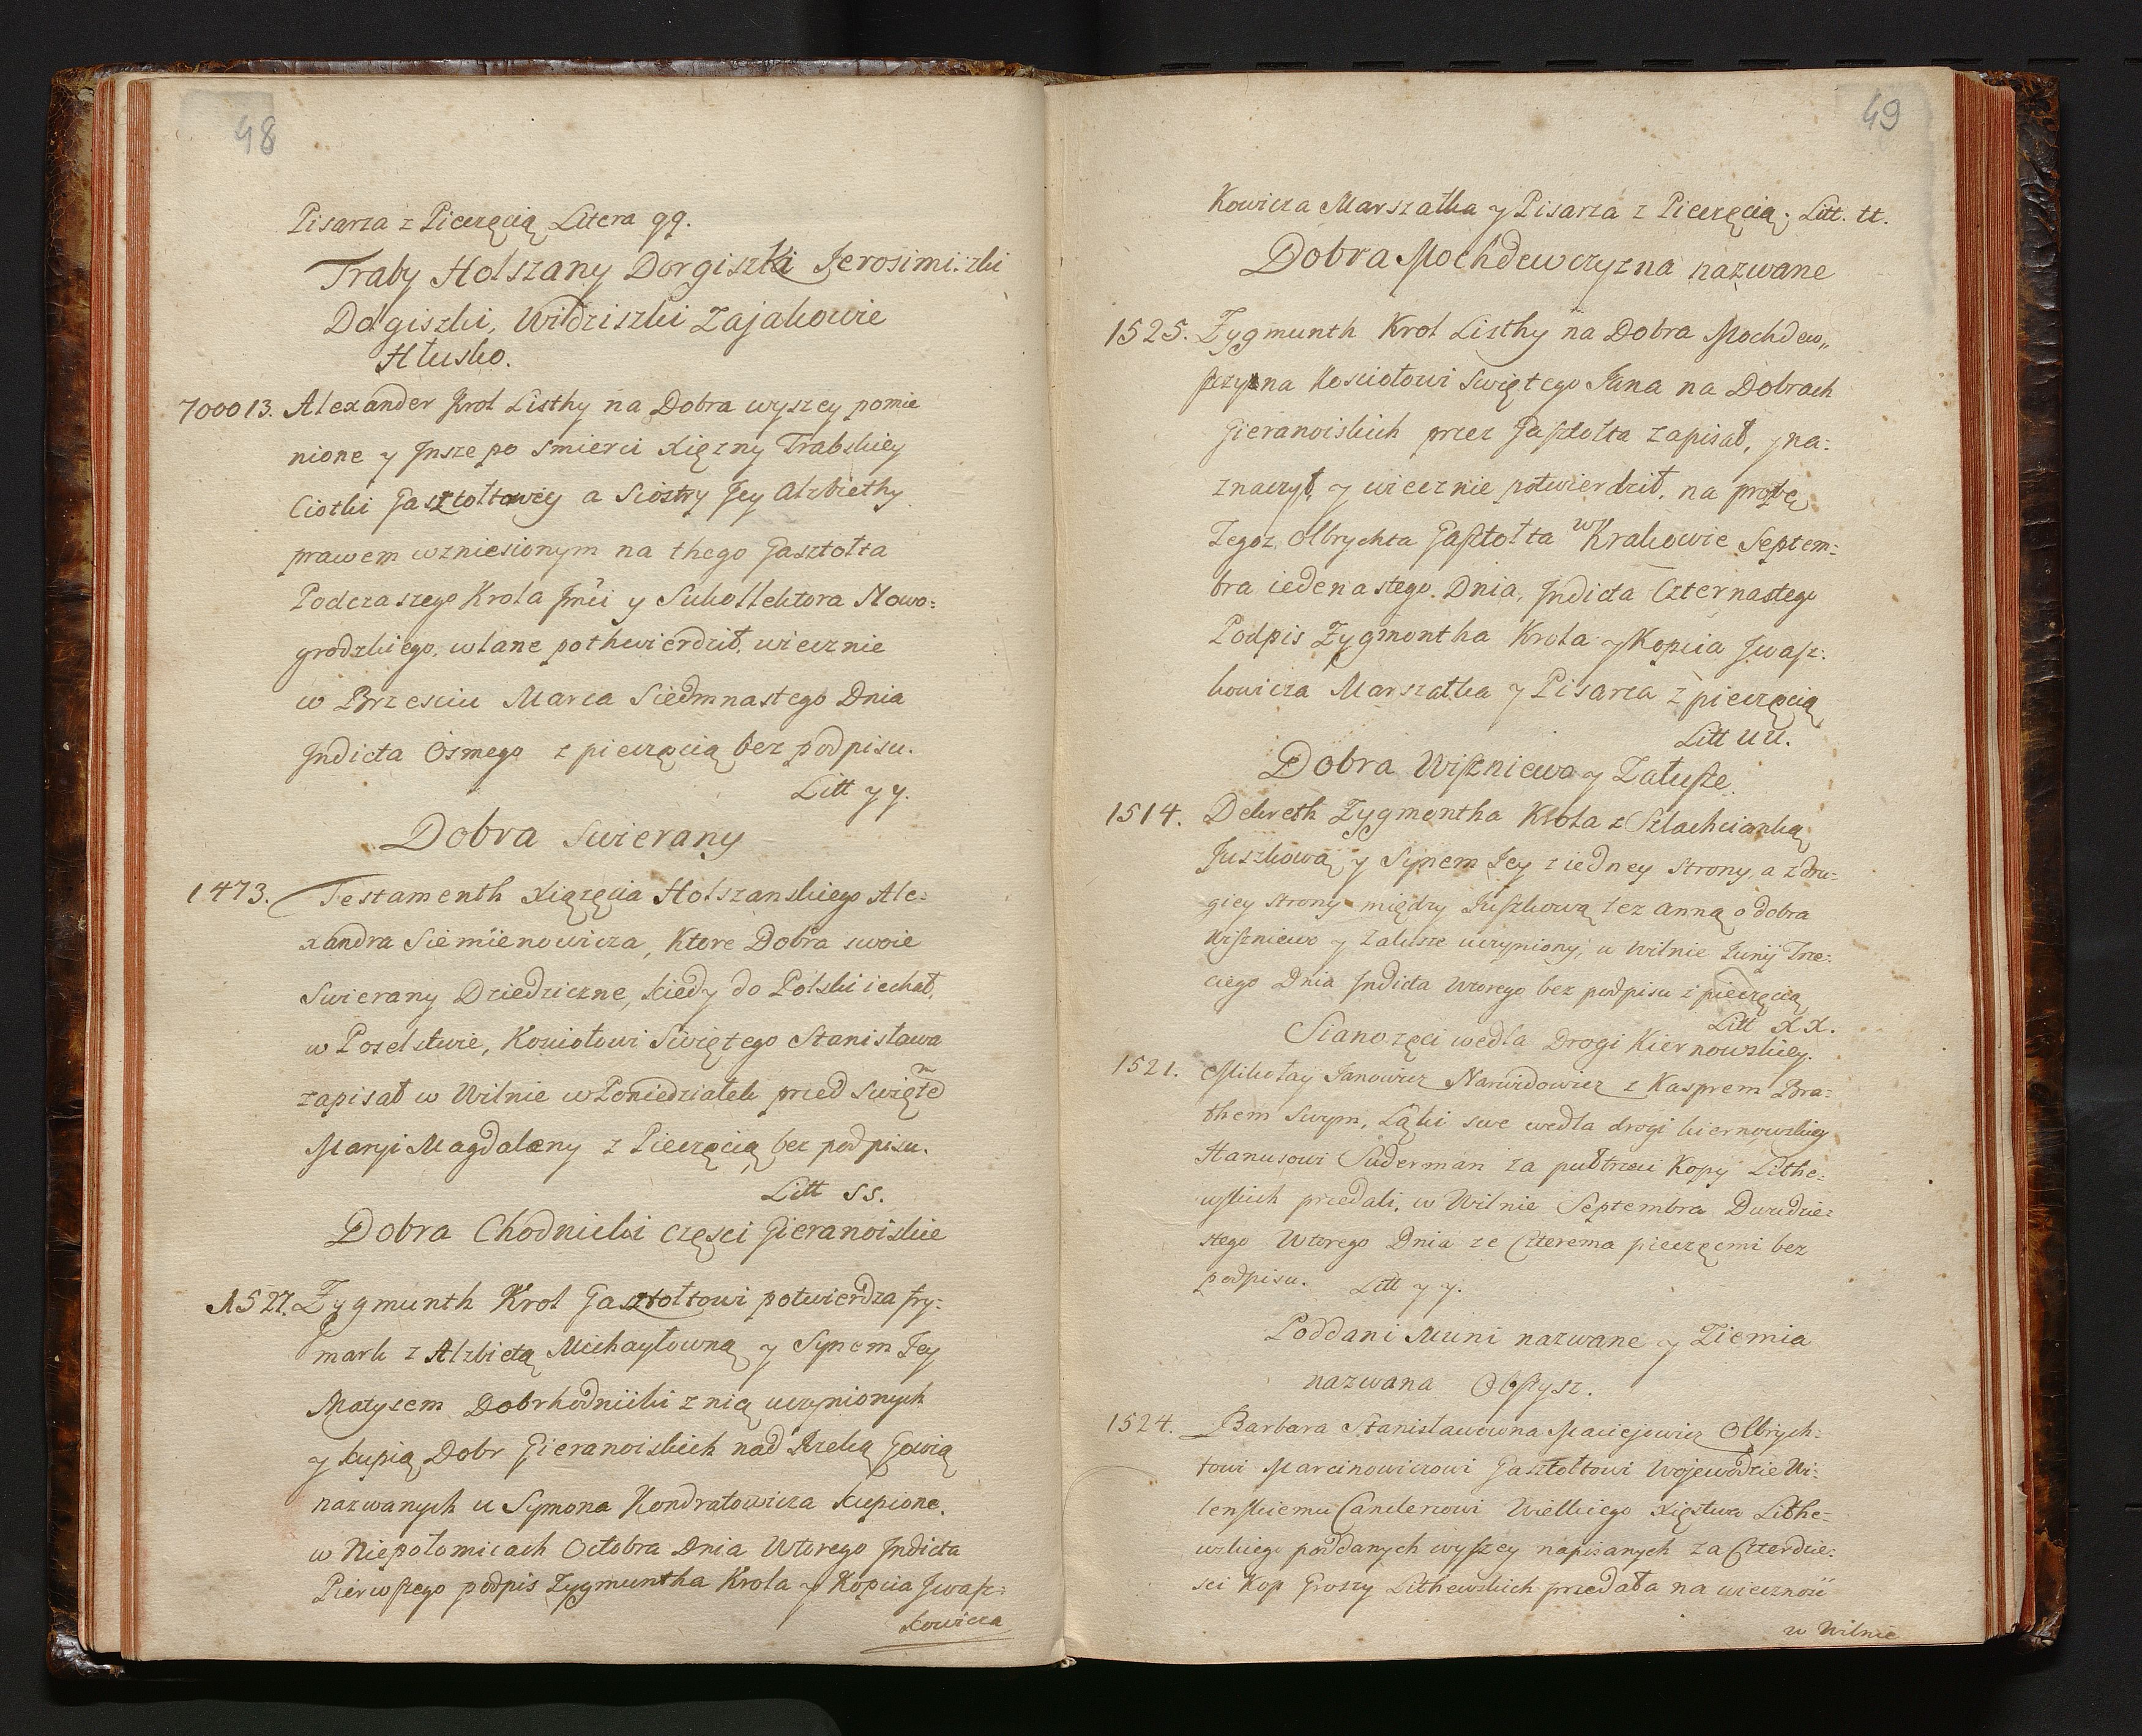 48
Pisarza z Pieczęcią Litera qq.
Traby Holszany Dorgiszki Jerosimiszki
Dolgiszki, Widziszki Zajakowie
Hłusko.
700013. Alexander Krol Listhy na Dobra wyszey pomie
nione y Jnsze po smierci Xięzny Trabskiey
Ciotki Gasztołtowey a Siostry Jey Alzbiethy
prawem wzniesionym na thego Gasztołta
Podczaszego Krola Jmci y Sukollektora Nowo:
grodzkiego, wlane pothwierdził, wiecznie
w Brzesciu Marca Siedmnastego Dnia
Jndicta Osmego z pieczęcią bez podpisu.
Litt yy.
Dobra Swierany
1473. Testamenth Xiązęcia Holszanskiego Ale:
xandra Siemienowicza, Ktore Dobra swoie
Swierany Dziedziczne, kiedy do Polski iechał,
w Poselstwie, Kosciołowi Swiętego Stanisława
zapisał w Wilnie w Poniedziałek przed Swięte
Maryi Magdaleny z Pieczęcią bez podpisu.
Litt ss.
Dobra Chodnicki częsci Gieranoiskie
1527. Zygmunth Krol Gasztołtowi potwierdza fry:
mark z Alzbietą Michayłowną y Synem Jey
Matysem Dobrhodnicki z nią uczynionych
y kupią Dobr Gieranoiskich nad Rzeką Gawią
nazwanych u Symona Kondratowicza kupione.
w Niepołomicach Octobra Dnia Wtorego Jndicta
Pierwszego podpis Zygmuntha Krola y Kopcia Jwasz:
kowicza
49
Kowicza Marszałka y Pisarza z Pieczęcią. Litt. tt.
Dobra Mochdewczyzna nazwane
1525. Zygmunth Krol Listhy na Dobra Mochdew„
szczyzna Kosciołowi Swiętego Jana na Dobrach
Gieranoiskich przez Gasztołta zapisał, y na:
znaczył, y wiecznie potwierdził, na prozbę
Tegoz Olbrychta Gasztołta w Krakowie Septem:
bra iedenastego Dnia, Jndicta Czternastego
Podpis Zygmontha Krola y Kopcia Jwasz:
kowicza Marszałka y Pisarza z pieczęcią
Litt uu.
Dobra Wiszniewo y Załusze.
1514. Dekreth Zygmontha Krola z Szlachcianką
Juszkową y Synem Jey z iedney strony, a z dru:
giey strony między Juszkową tez Anną o dobra
Wiszniewo y Załusze uczyniony, w Wilnie Junij Trze:
ciego Dnia Jndicta Wtorego bez podpisu z pieczęcią
Litt xx.
Sianozęci wedla Drogi Kiernowskiey.
1521. Mikołay Janowicz Narwidowicz z Kasprem Bra:
them swym, Łąki swe wedla drogi kiernowskiey
Hanusowi Suderman za pułtrzeci Kopy Lithe:
wskich przedali, w Wilnie Septembra Dwudzie:
stego Wtorego Dnia ze Czterema pieczęcmi bez
podpisu. Litt yy.
Poddani Muni nazwane y Ziemia
nazwana Obstysz.
1524. Barbara Stanisławowna Maciejowicz Olbrych:
towi Marcinowiczowi Gasztołtowi Wojewodzie Wi:
lenskiemu Canclerzowi Wielkiego Xięstwa Lithe:
wskiego poddanych wyszey napisanych za Czterdzie:
sci Kop Groszy Lithewskich przedała na wiecznosć
w Wilnie